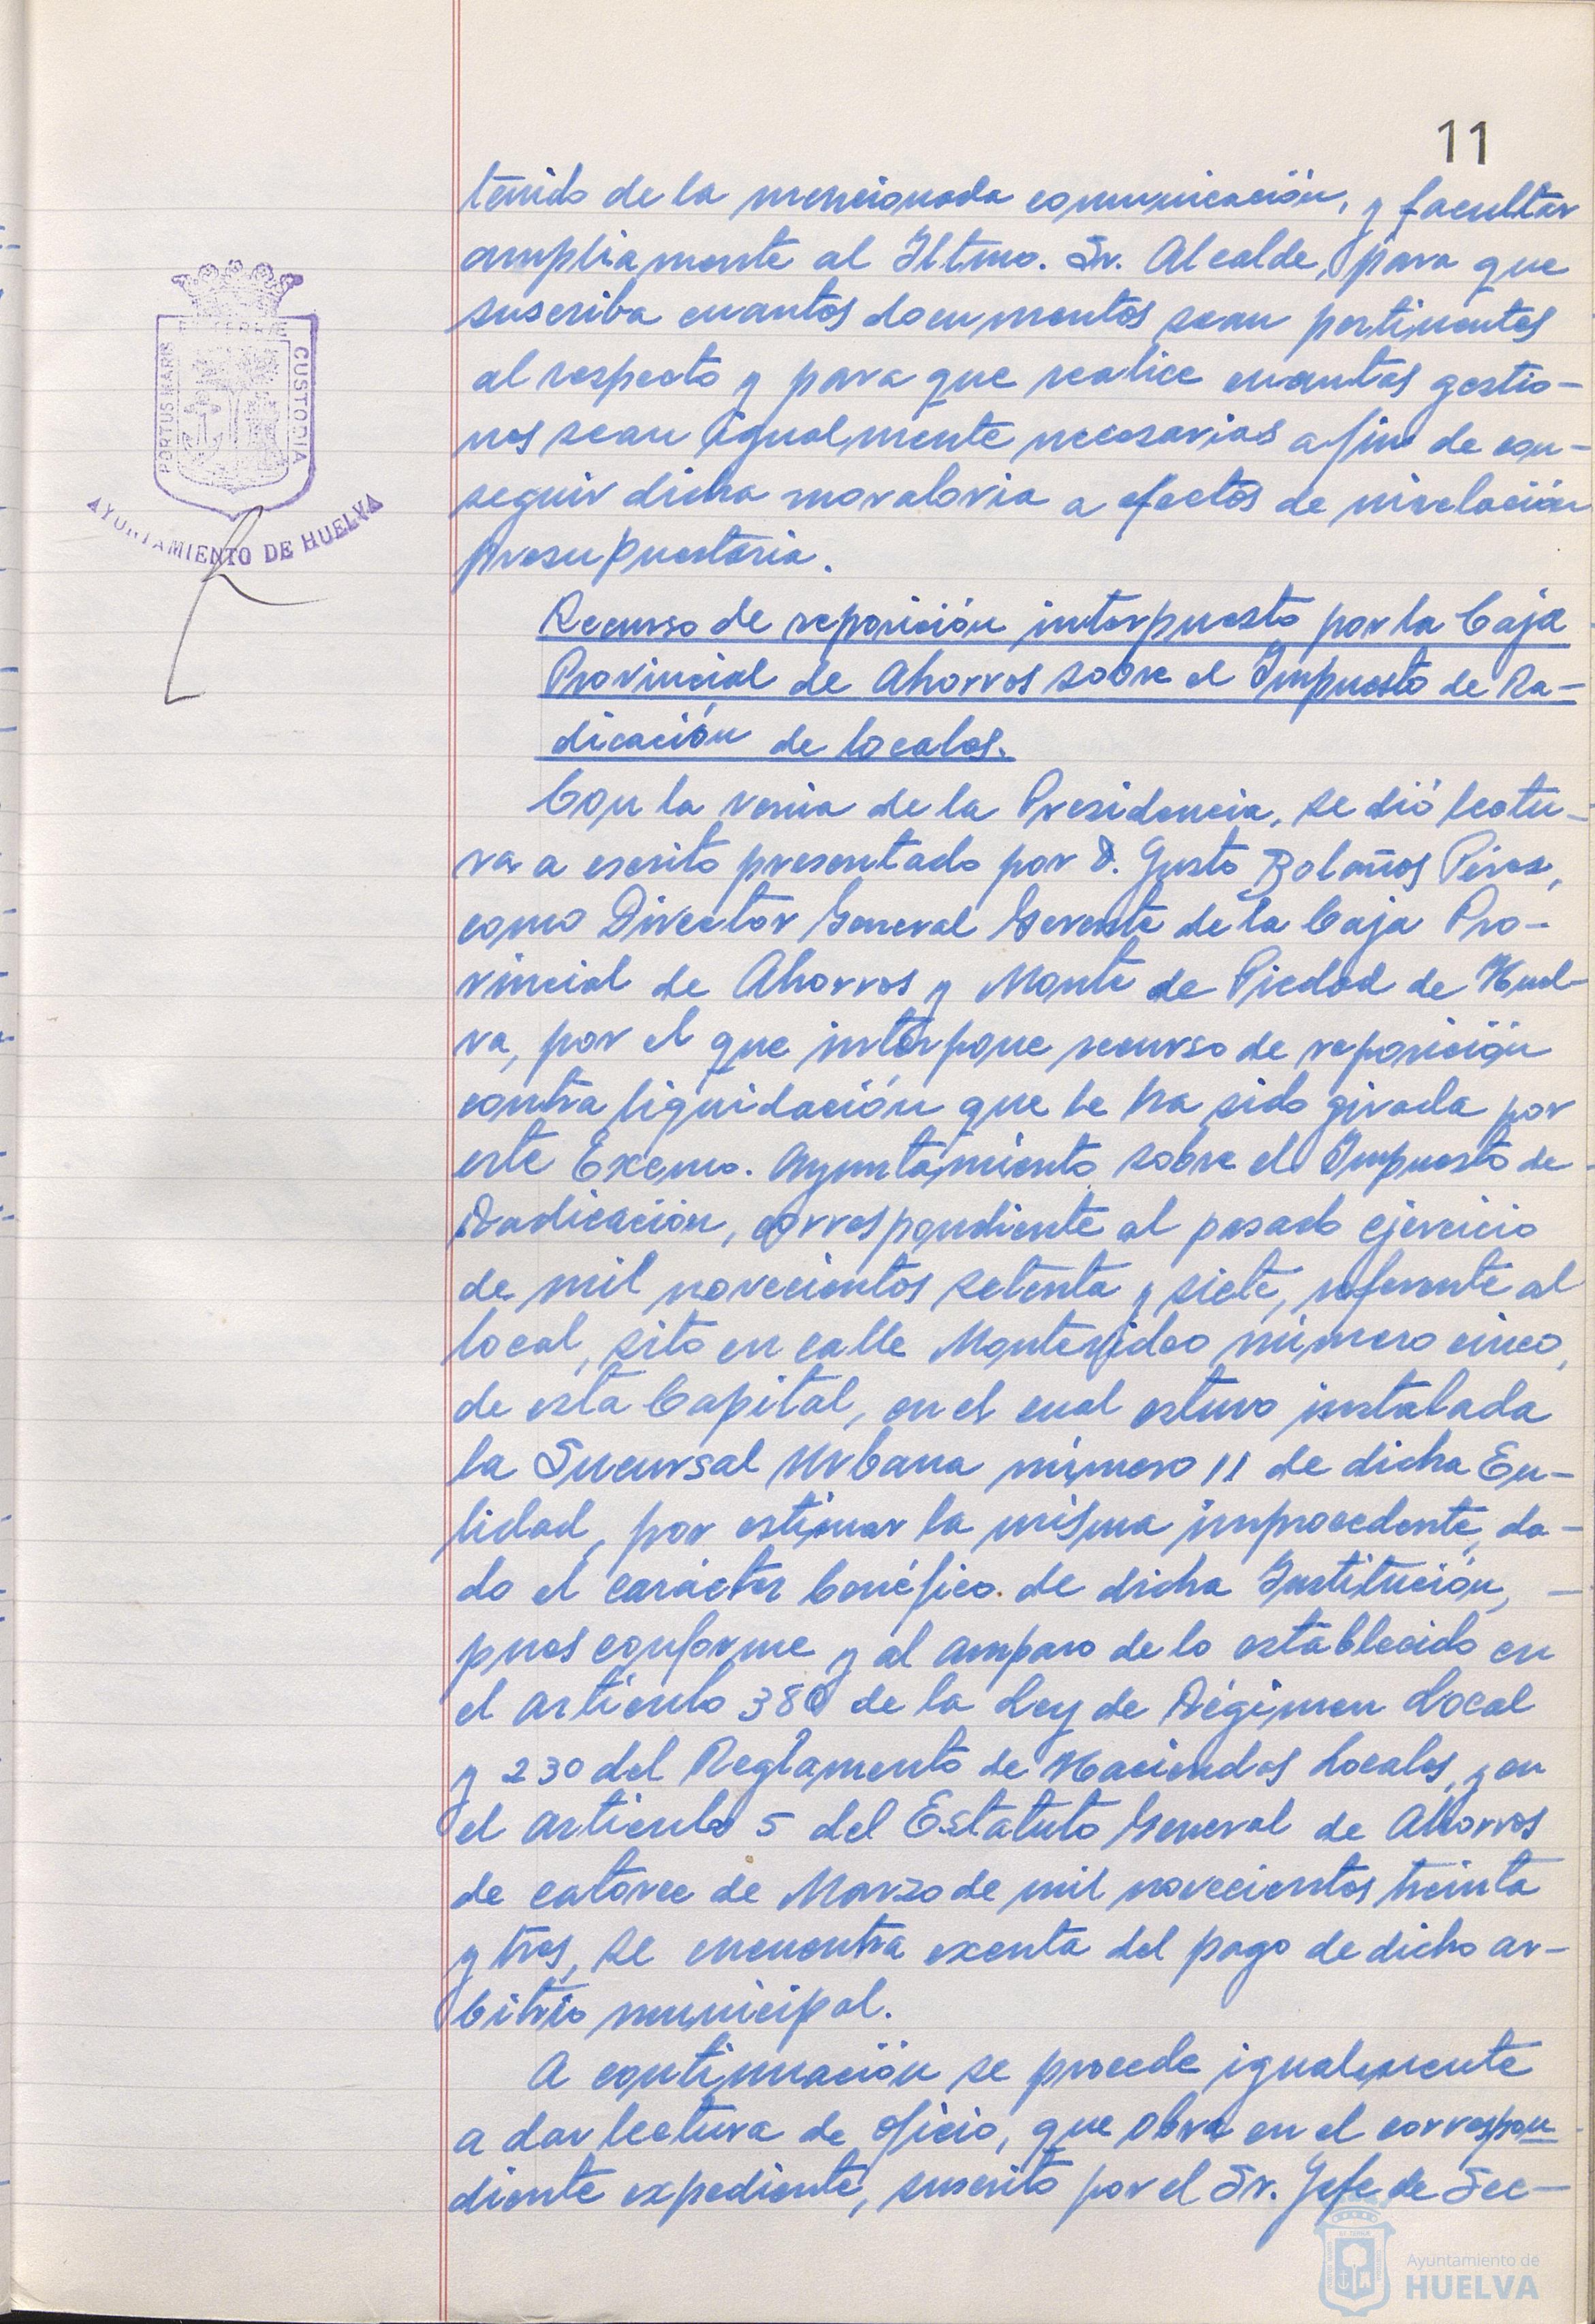 11
tenido de la mencionada comunicación, y facultar
ampliamente al Iltmo. Sr. Alcalde, para que
suscriba cuantos documentos sean pertinentes
al respecto y para que realice cuantas gestio-
nes sean igualmente necesarias a fin de con-
seguir dicha moratoria a efectos de nivelación
presupuestaria.
Recurso de reposición interpuesto por la Caja
Provincial de Ahorros sobre el Impuesto de Ra-
dicación de locales.
Con la venia de la Presidencia, se dió lectu-
ra a escrito presentado por D. Justo Bolaños Pérez,
como Director General Gerente de la Caja Pro-
vincial de Ahorros y Monte de Piedad de Huel-
va, por el que interpone recurso de reposición
contra liquidación que le ha sido girada por
este Excmo. Ayuntamiento sobre el Impuesto de
Radicación, correspondiente al pasado ejercicio
de mil novecientos setenta y siete, referente al
local, sito en calle Montevideo número cinco,
de esta Capital, en el cual estuvo instalada
la Sucursal Urbana número 11 de dicha En-
tidad, por estimar la misma improcedente, da-
do el carácter benéfico de dicha Institución,
pues conforme y al amparo de lo establecido en
el artículo 380 de la Ley de Régimen Local
y 230 del Reglamento de Haciendas Locales, y en
el artículo 5 del Estatuto General de Ahorros
de catorce de Marzo de mil novecientos treinta
y tres, se encuentra exenta del pago de dicho ar-
bitrio municipal.
A continuación se procede igualmente
a dar lectura de oficio, que obra en el correspon
diente expediente, suscrito por el Sr. Jefe de Sec-
PORTUS MARIS
ET TERRAE
CUSTODIA
AYUNTAMIENTO DE HUELVA
Ayuntamiento de
HUELVA